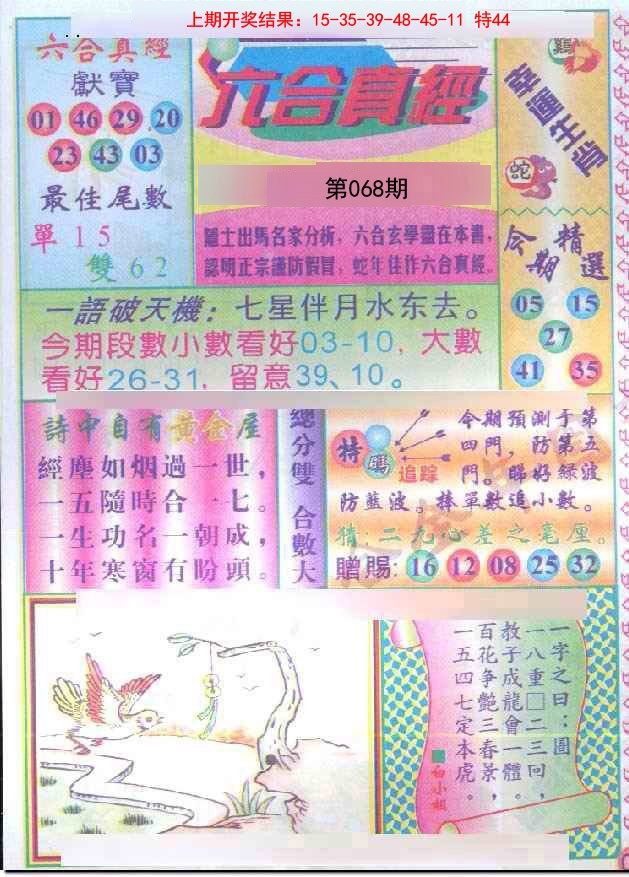 上期开奖结果：15-35-39-48-45-11 特44
六合真經
獻寶
01 46 29 20
23 43 03
最佳尾數
單 15
雙 62
六合真經
第068期
隱士出馬名家分析，六合玄學盡在本書，
認明正宗謹防假冒，蛇年佳作六合真經。
幸運生肖
鷄
蛇
今期精選
05 15
27
41 35
一語破天機：七星伴月水东去。
今期段數小數看好03-10，大數
看好26-31，留意39、10。
詩中自有黃金屋
經塵如烟過一世，
一五隨時合一七。
一生功名一朝成，
十年寒窗有盼頭。
總分雙 合數大
特碼
追踪
今期預測于第
四門，防第五
門。睇好綠波
防藍波。捧單數追小數。
猜：二九心差之毫厘。
贈賜：16 12 08 25 32
一字之曰：圖
一八重□二三回，
教子成龍會一體。
百花争艷三春景，
一五四七定本虎。
白小姐